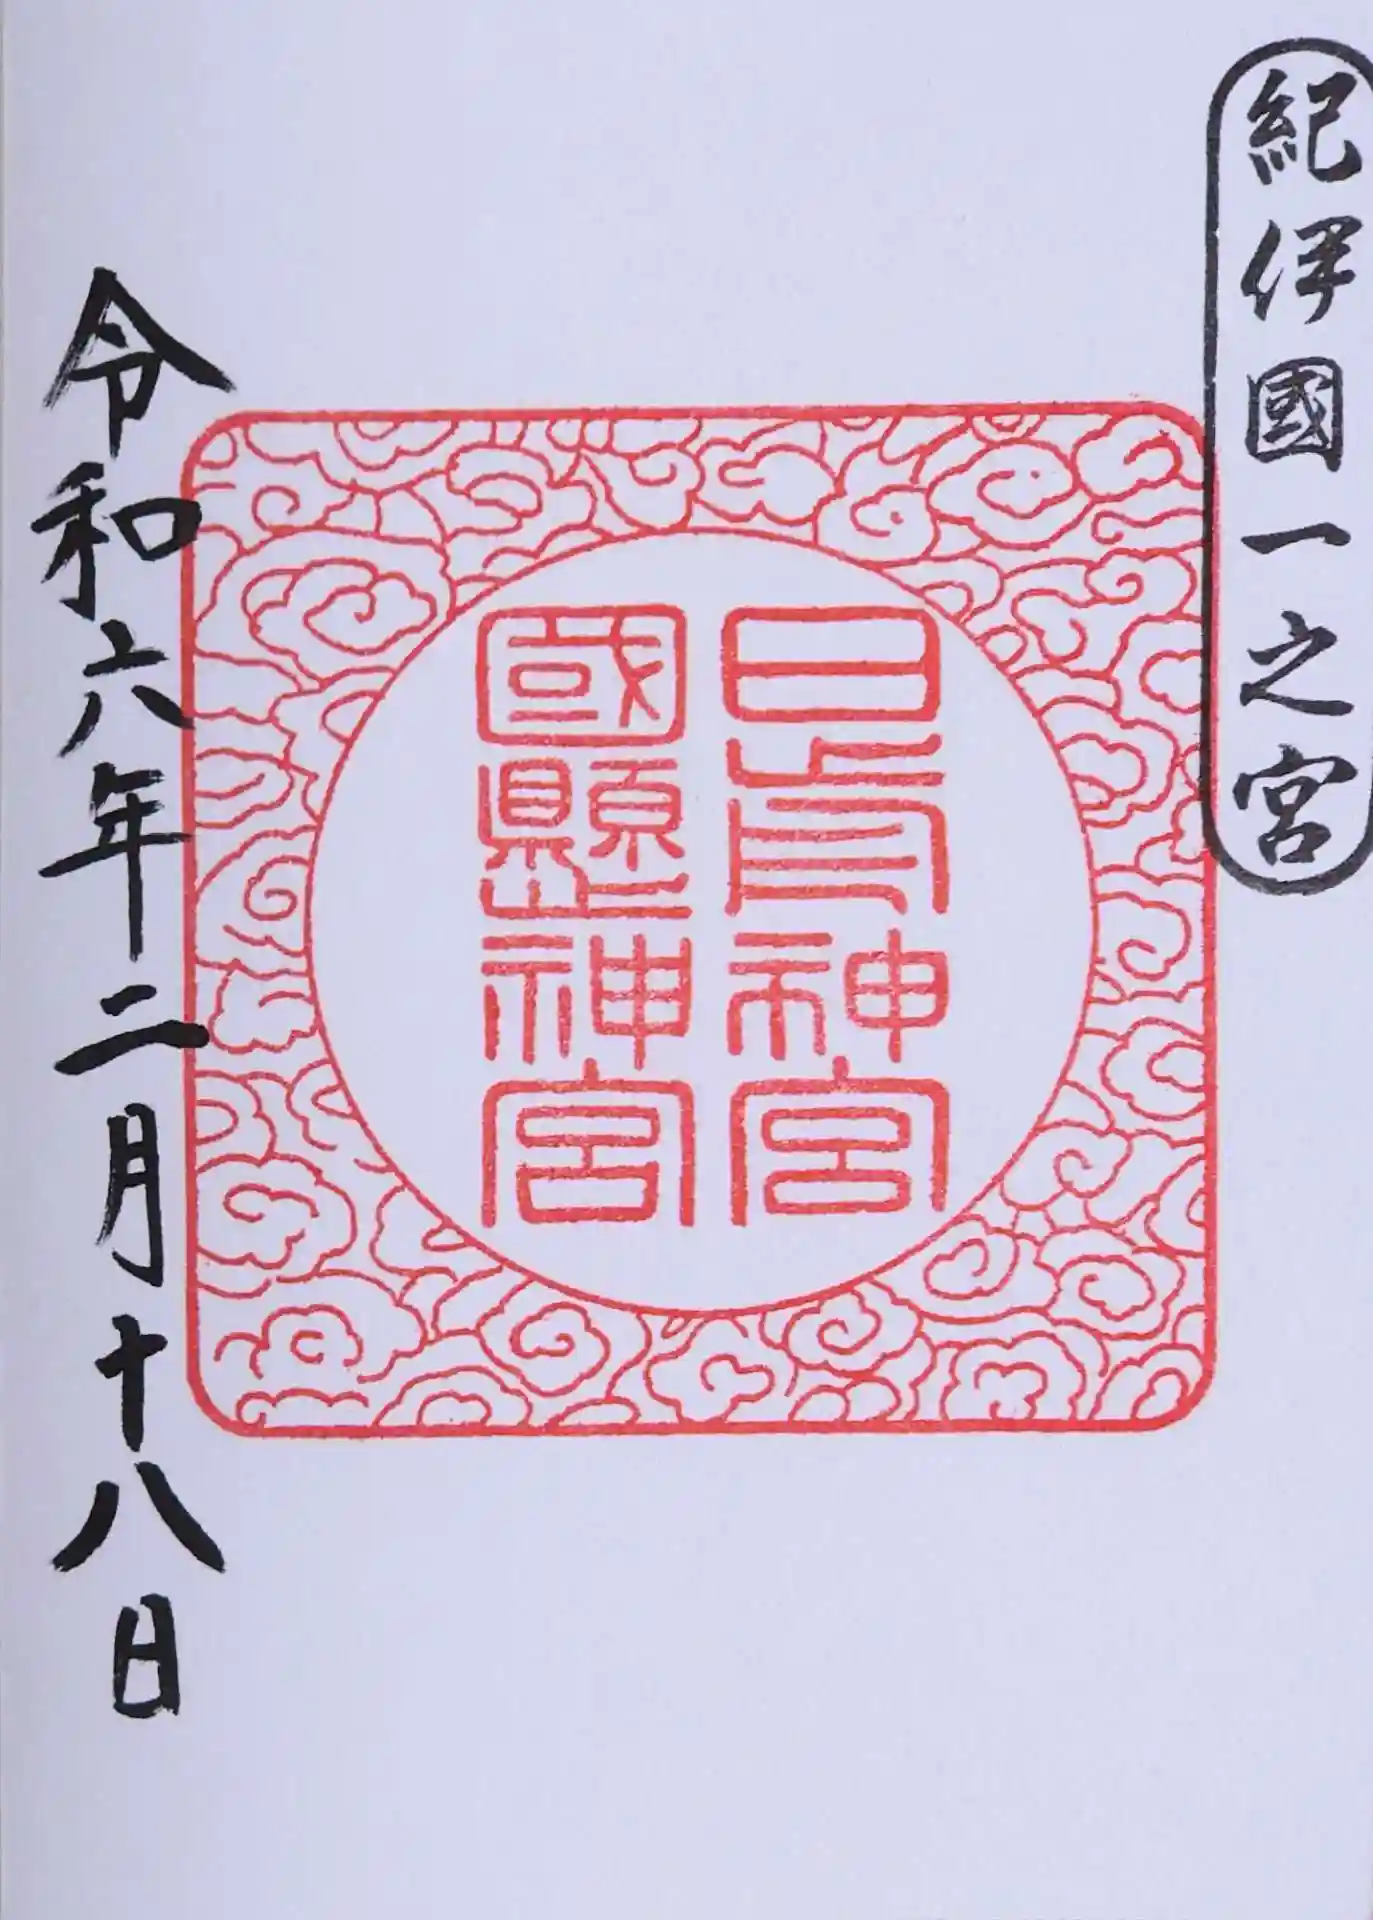 紀伊國一之宮
日前神宮
國懸神宮
令和六年二月十八日